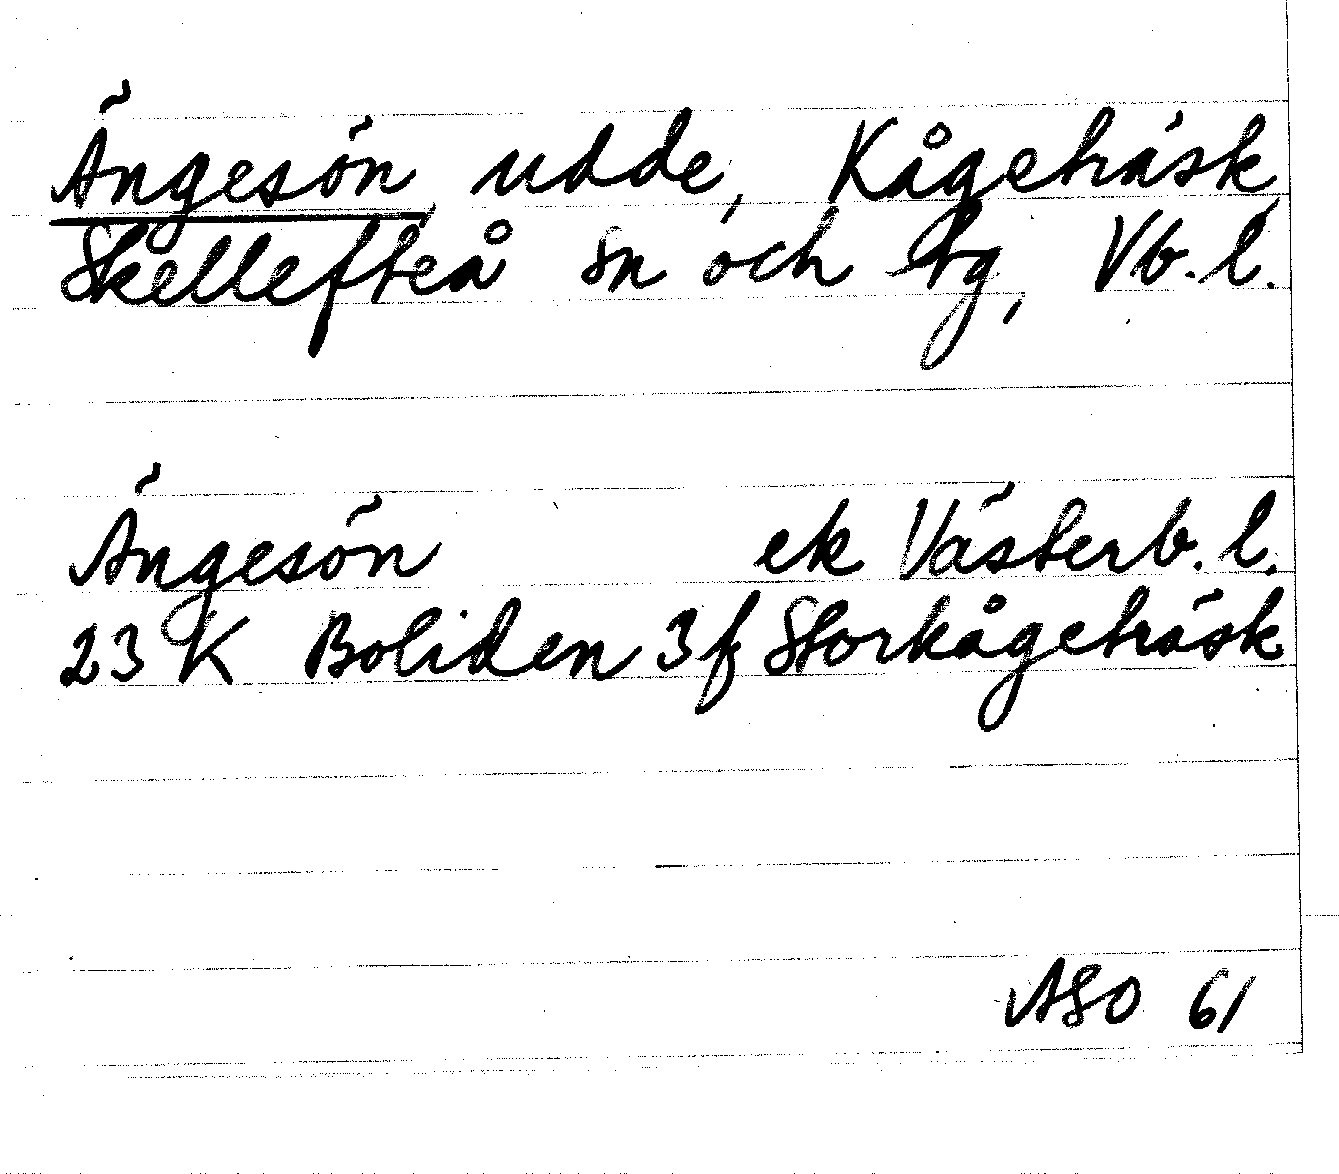 Ängesön, udde, Kågeträsk,
Skellefteå sn och tg, Vb. l.
Ängesön ek Västerb. l.
23 K Boliden 3f Storkågeträsk
ASO 61